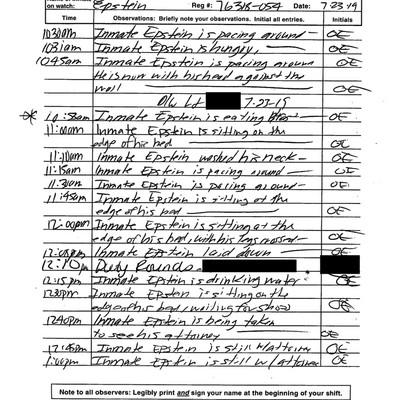 on watch: Epstein Reg #: 76318-054 Date: 7-23-19
Time Observations: Briefly note your observations. Initial all entries. Initials
1030am Inmate Epstein is pacing around — OE
1031am Inmate Epstein is hungry, OE
1045am Inmate Epstein is pacing around OE
He is now with his head against the
wall OE
Lt 7-23-19
10:58am Inmate Epstein is eating OE
11:00am Inmate Epstein is sitting on the
edge of his bed OE
11:10am Inmate Epstein washed his neck — OE
11:15am Inmate Epstein is pacing around — OE
11:30am Inmate Epstein is pacing around — OE
11:45am Inmate Epstein is sitting at the
edge of his bed OE
12:00pm Inmate Epstein is sitting at the
edge of his bed, with his legs OE
12:08pm Inmate Epstein laid down OE
12:10pm Duty Rounds
12:15pm Inmate Epstein is drinking water OE
1230pm Inmate Epstein is sitting on the
edge of his bed, waiting for OE
1240pm Inmate Epstein is being taken
to see his attorney OE
12:45pm Inmate Epstein is still w/attorney OE
1:00pm Inmate Epstein is still w/attorney OE
Note to all observers: Legibly print and sign your name at the beginning of your shift.